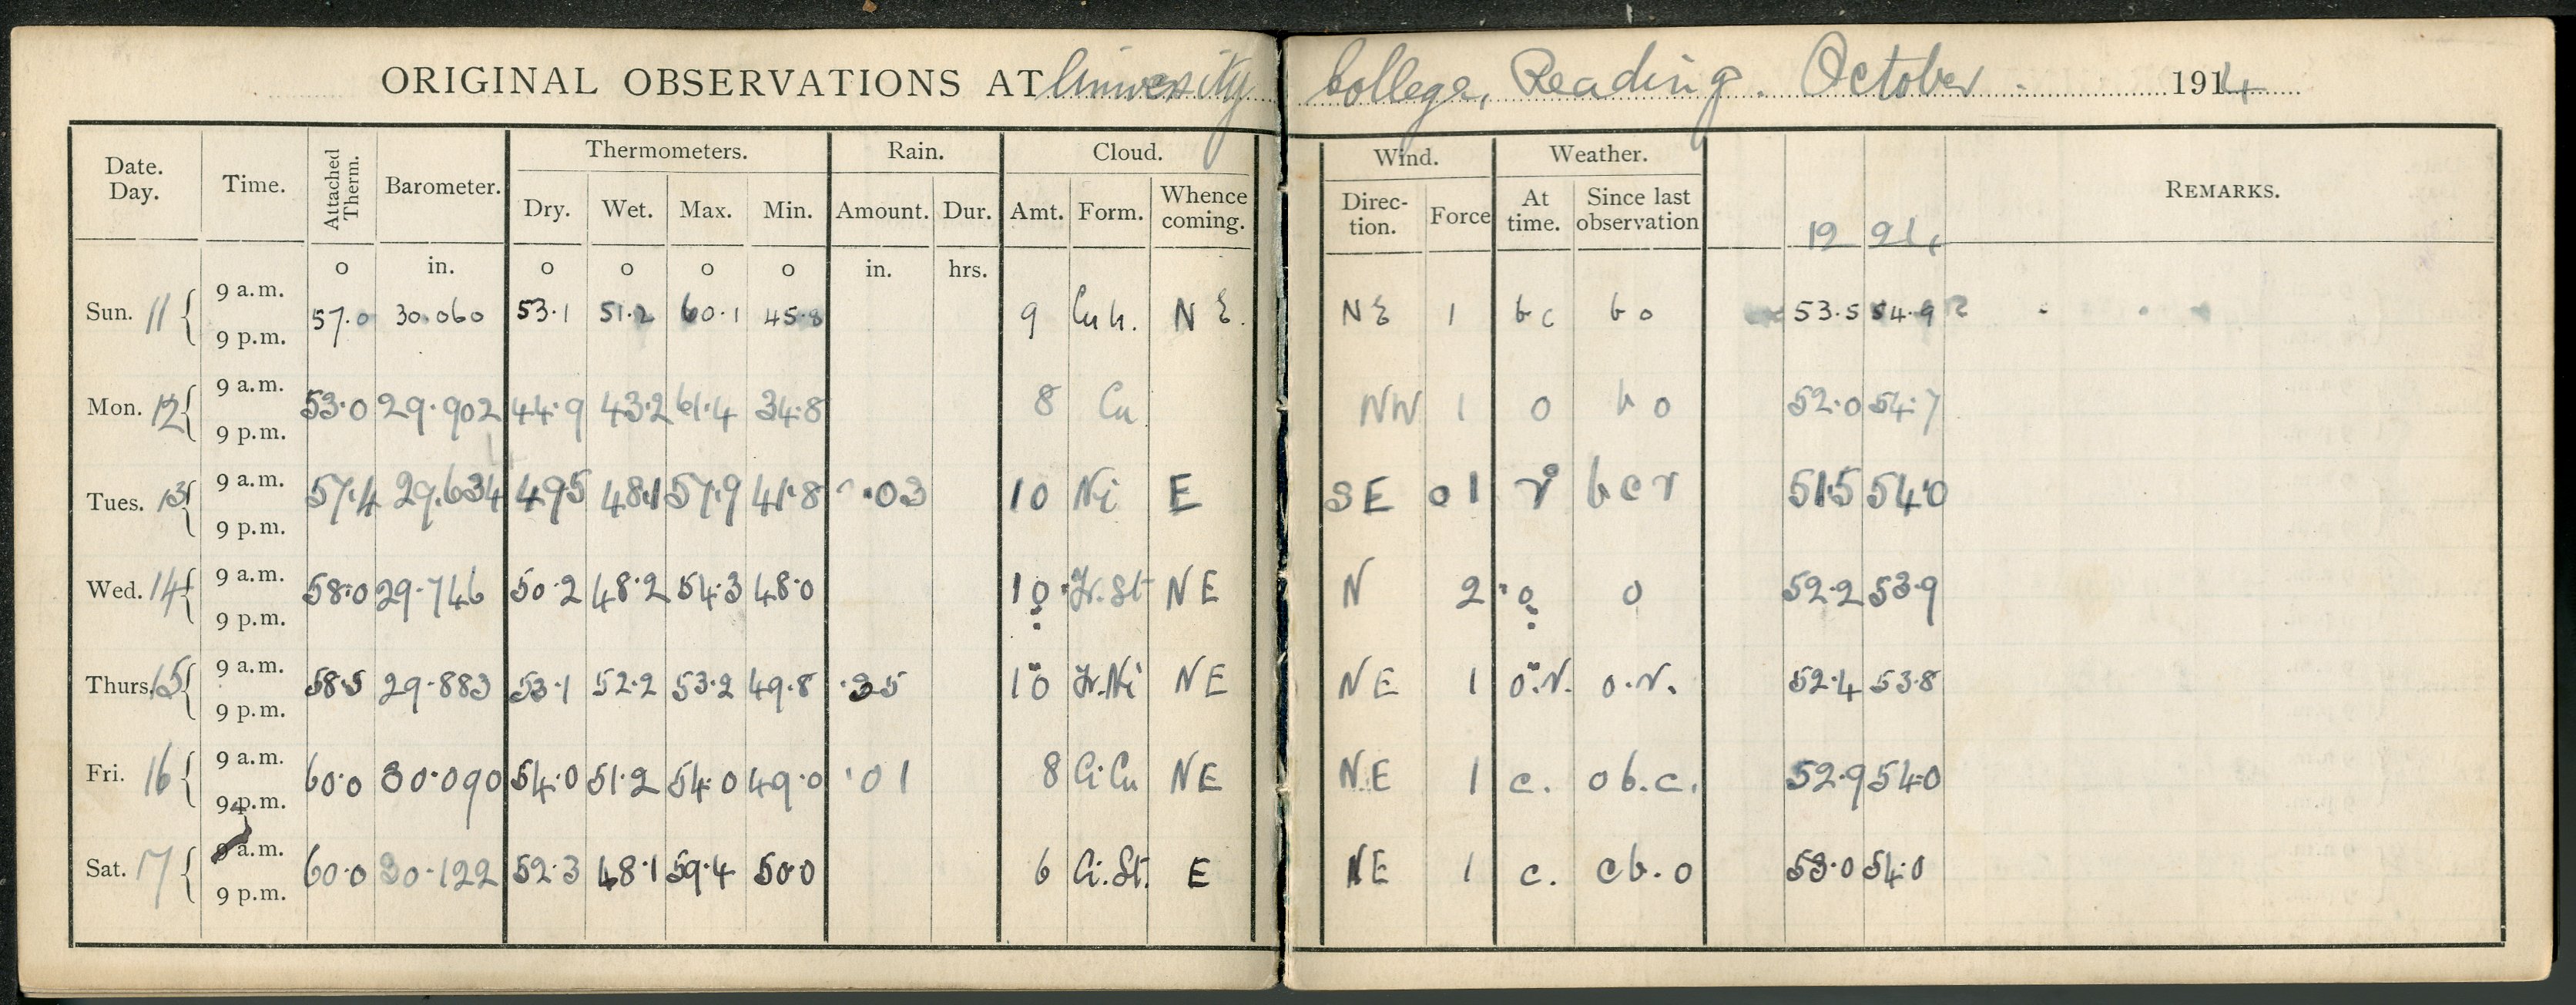 ORIGINAL OBSERVATIONS AT University College, Reading. October 1914
Date. Day. Time. Attached Therm. Barometer. Thermometers. Rain. Cloud. Wind. Weather. REMARKS.
Dry. Wet. Max. Min. Amount. Dur. Amt. Form. Whence coming. Direc- tion. Force At time. Since last observation 12 24
o in. o o o o in. hrs.
Sun. 11 { 9 a.m. 9 p.m. 57.0 30.060 53.1 51.2 60.1 45.8 9 NE. NE 1 bc bo 53.5 54.9
Mon. 12 { 9 a.m. 9 p.m. 53.0 29.902 44.9 43.2 61.4 34.8 8 Cu NW 1 o bo 52.0 54.7
Tues. 13 { 9 a.m. 9 p.m. 57.4 29.634 49.5 48.1 57.9 41.8 .03 10 Ni E SE 01 r bcr 51.5 54.0
Wed. 14 { 9 a.m. 9 p.m. 58.0 29.746 50.2 48.2 54.3 48.0 10 Fr.St NE N 2 o o 52.2 53.9
Thurs. 15 { 9 a.m. 9 p.m. 58.5 29.883 53.1 52.2 53.2 49.8 .35 10 Fr.Ni NE NE 1 o.r. o.r. 52.4 53.8
Fri. 16 { 9 a.m. 9 p.m. 60.0 30.090 54.0 51.2 54.0 49.0 .01 8 Ci Cu NE NE 1 c. ob.c. 52.9 54.0
Sat. 17 { 9 a.m. 9 p.m. 60.0 30.122 52.3 48.1 59.4 50.0 6 Ci.St. E NE 1 c. cb.o 53.0 54.0